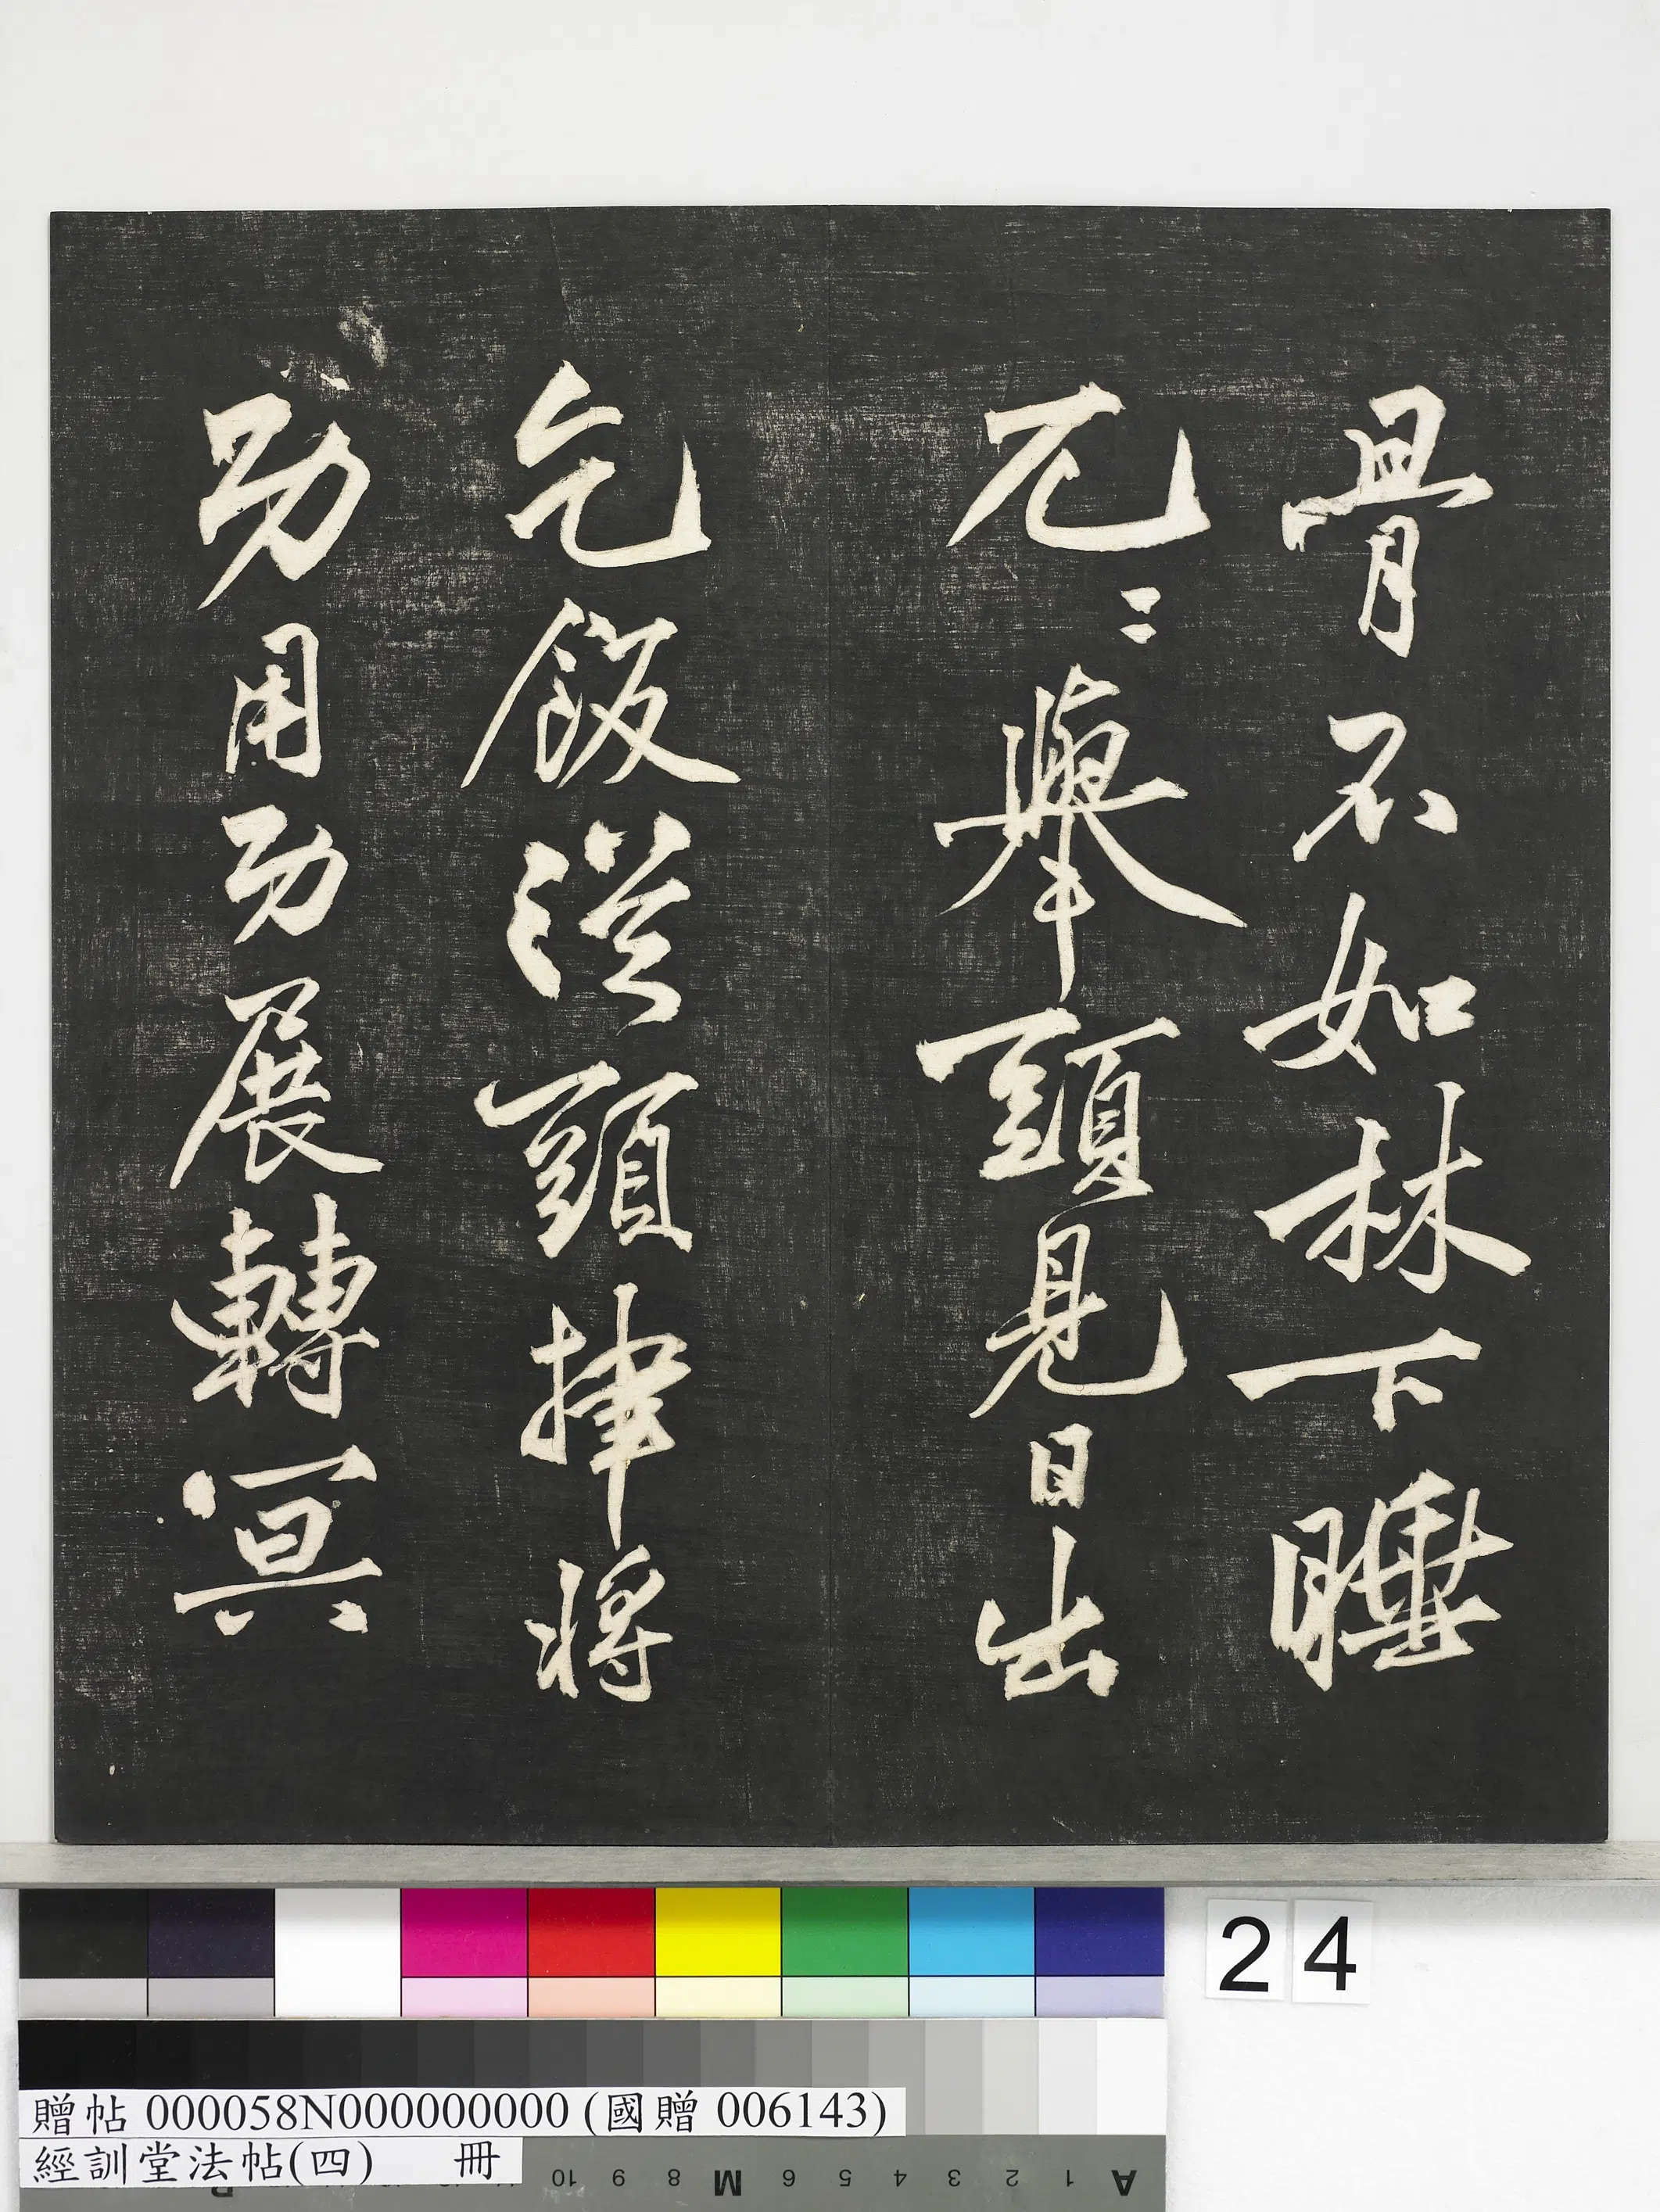 骨不如林下睡
兀〻舉頭見日出
乞飯從頭捽將
功用功展轉冥
24
贈帖 000058N000000000 (國贈 006143)
經訓堂法帖(四) 冊
A 1 2 3 4 5 6 M 8 9 10